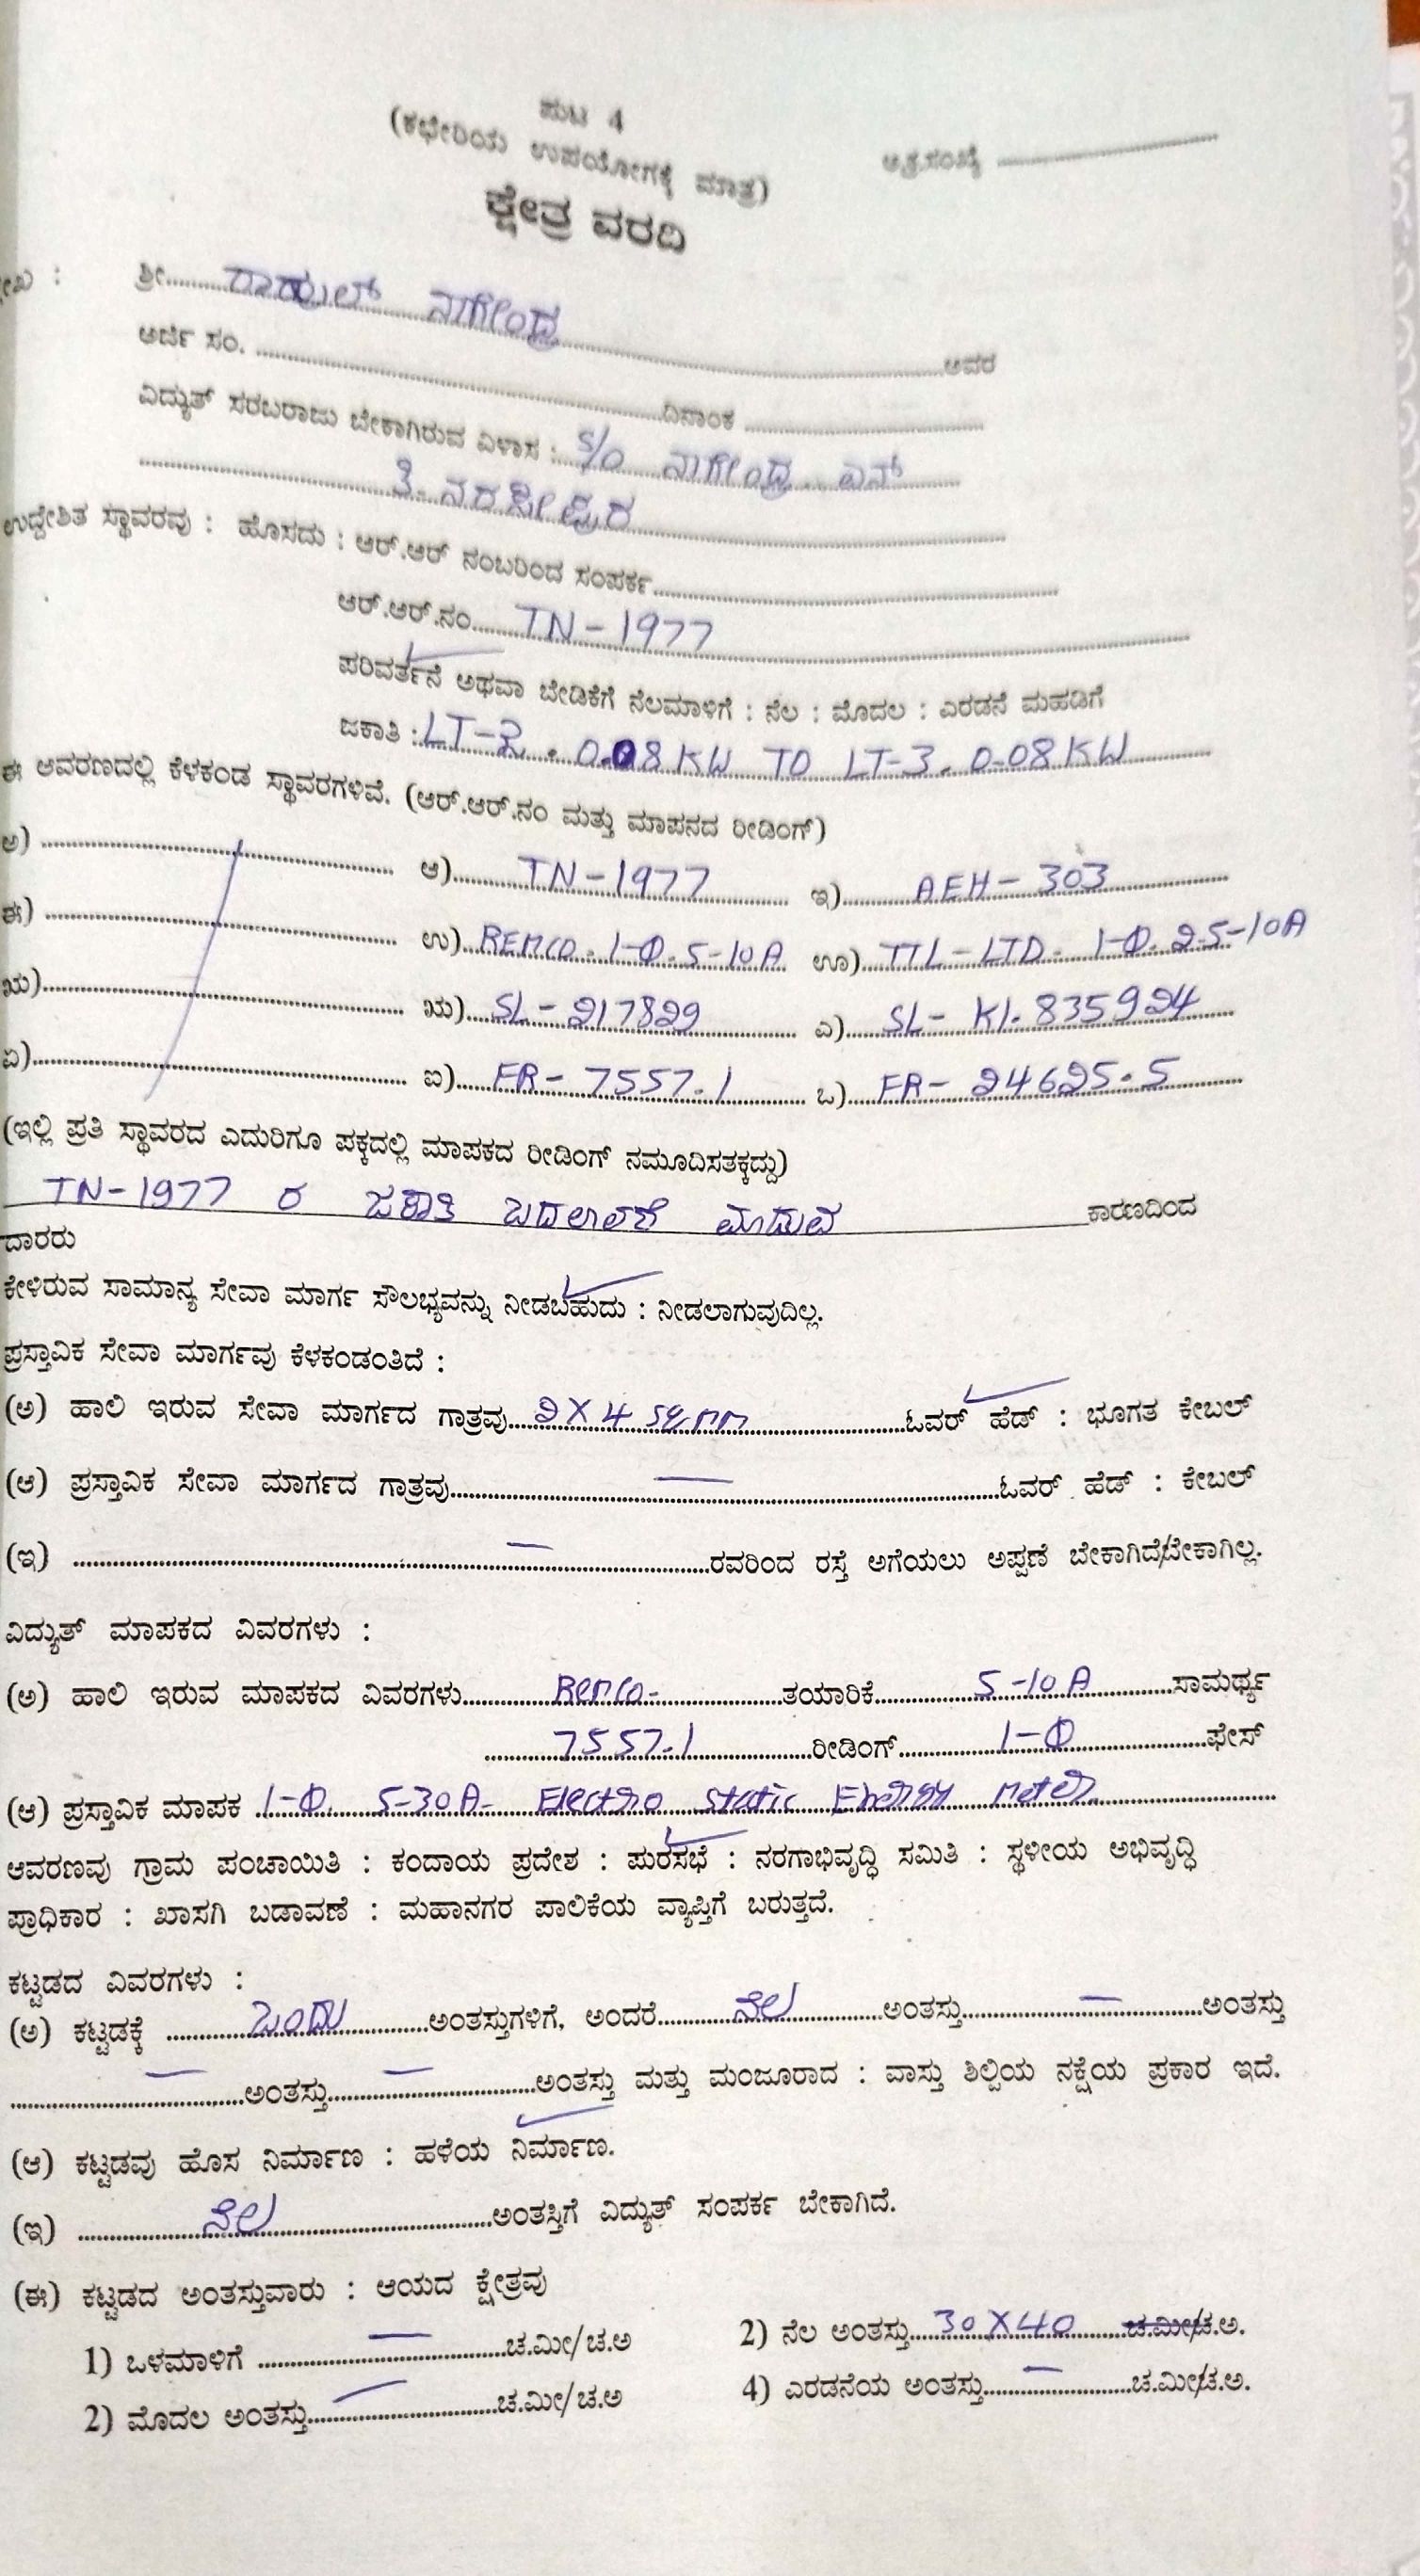 ಪುಟ 4
(ಕಛೇರಿಯ ಉಪಯೋಗಕ್ಕೆ ಮಾತ್ರ)
ಕ್ಷೇತ್ರ ವರದಿ
ಶ್ರೀ ರಾಹುಲ್ ನಾಗೇಂದ್ರ ಅವರ
ಅರ್ಜಿ ಸಂ. ದಿನಾಂಕ
ವಿದ್ಯುತ್ ಸರಬರಾಜು ಬೇಕಾಗಿರುವ ವಿಳಾಸ : S/o ನಾಗೇಂದ್ರ ಎನ್
ತಿ. ನರಸೀಪುರ
ಉದ್ದೇಶಿತ ಸ್ಥಾವರವು : ಹೊಸದು : ಆರ್.ಆರ್ ನಂಬರಿಂದ ಸಂಪರ್ಕ
ಆರ್.ಆರ್.ನಂ. TN-1977
ಪರಿವರ್ತನೆ ಅಥವಾ ಬೇಡಿಕೆಗೆ ನೆಲಮಾಳಿಗೆ : ನೆಲ : ಮೊದಲ : ಎರಡನೆ ಮಹಡಿಗೆ
ಜಕಾತಿ : LT-2. 0.08 KW TO LT-3. 0.08 KW
ಈ ಆವರಣದಲ್ಲಿ ಕೆಳಕಂಡ ಸ್ಥಾವರಗಳಿವೆ. (ಆರ್.ಆರ್.ನಂ ಮತ್ತು ಮಾಪನದ ರೀಡಿಂಗ್)
ಅ) ಆ) TN-1977 ಇ) AEH-303
ಈ) ಉ) REMCO. 1-Φ. 5-10A ಊ) TTL-LTD. 1-Φ. 2.5-10A
ಋ) ಋ) SL-217829 ಎ) SL- K1.835924
ಏ) ಐ) FR-7557.1 ಒ) FR-24625.5
(ಇಲ್ಲಿ ಪ್ರತಿ ಸ್ಥಾವರದ ಎದುರಿಗೂ ಪಕ್ಕದಲ್ಲಿ ಮಾಪಕದ ರೀಡಿಂಗ್ ನಮೂದಿಸತಕ್ಕದ್ದು)
TN-1977 ರ ಜಕಾತಿ ಬದಲಾವಣೆ ಮಾಡುವ ಕಾರಣದಿಂದ
ದಾರರು
ಕೇಳಿರುವ ಸಾಮಾನ್ಯ ಸೇವಾ ಮಾರ್ಗ ಸೌಲಭ್ಯವನ್ನು ನೀಡಬಹುದು : ನೀಡಲಾಗುವುದಿಲ್ಲ.
ಪ್ರಸ್ತಾವಿಕ ಸೇವಾ ಮಾರ್ಗವು ಕೆಳಕಂಡಂತಿದೆ :
(ಅ) ಹಾಲಿ ಇರುವ ಸೇವಾ ಮಾರ್ಗದ ಗಾತ್ರವು 2 X 4 sqmm ಓವರ್ ಹೆಡ್ : ಭೂಗತ ಕೇಬಲ್
(ಆ) ಪ್ರಸ್ತಾವಿಕ ಸೇವಾ ಮಾರ್ಗದ ಗಾತ್ರವು — ಓವರ್ ಹೆಡ್ : ಕೇಬಲ್
(ಇ) — ರವರಿಂದ ರಸ್ತೆ ಅಗೆಯಲು ಅಪ್ಪಣೆ ಬೇಕಾಗಿದೆ/ಬೇಕಾಗಿಲ್ಲ.
ವಿದ್ಯುತ್ ಮಾಪಕದ ವಿವರಗಳು :
(ಅ) ಹಾಲಿ ಇರುವ ಮಾಪಕದ ವಿವರಗಳು Remco- ತಯಾರಿಕೆ 5-10 A ಸಾಮರ್ಥ್ಯ
7557.1 ರೀಡಿಂಗ್ 1-Φ ಫೇಸ್
(ಆ) ಪ್ರಸ್ತಾವಿಕ ಮಾಪಕ 1-Φ 5-30A- Electro static Energy meter.
ಆವರಣವು ಗ್ರಾಮ ಪಂಚಾಯಿತಿ : ಕಂದಾಯ ಪ್ರದೇಶ : ಪುರಸಭೆ : ನರಗಾಭಿವೃದ್ಧಿ ಸಮಿತಿ : ಸ್ಥಳೀಯ ಅಭಿವೃದ್ಧಿ
ಪ್ರಾಧಿಕಾರ : ಖಾಸಗಿ ಬಡಾವಣೆ : ಮಹಾನಗರ ಪಾಲಿಕೆಯ ವ್ಯಾಪ್ತಿಗೆ ಬರುತ್ತದೆ.
ಕಟ್ಟಡದ ವಿವರಗಳು :
(ಅ) ಕಟ್ಟಡಕ್ಕೆ ಒಂದು ಅಂತಸ್ತುಗಳಿಗೆ, ಅಂದರೆ ನೆಲ ಅಂತಸ್ತು — ಅಂತಸ್ತು
— ಅಂತಸ್ತು — ಅಂತಸ್ತು ಮತ್ತು ಮಂಜೂರಾದ : ವಾಸ್ತು ಶಿಲ್ಪಿಯ ನಕ್ಷೆಯ ಪ್ರಕಾರ ಇದೆ.
(ಆ) ಕಟ್ಟಡವು ಹೊಸ ನಿರ್ಮಾಣ : ಹಳೆಯ ನಿರ್ಮಾಣ.
(ಇ) ನೆಲ ಅಂತಸ್ತಿಗೆ ವಿದ್ಯುತ್ ಸಂಪರ್ಕ ಬೇಕಾಗಿದೆ.
(ಈ) ಕಟ್ಟಡದ ಅಂತಸ್ತುವಾರು : ಆಯದ ಕ್ಷೇತ್ರವು
1) ಒಳಮಾಳಿಗೆ — ಚ.ಮೀ/ಚ.ಅ 2) ನೆಲ ಅಂತಸ್ತು 30 X 40 ಚ.ಮೀ/ಚ.ಅ.
2) ಮೊದಲ ಅಂತಸ್ತು — ಚ.ಮೀ/ಚ.ಅ 4) ಎರಡನೆಯ ಅಂತಸ್ತು — ಚ.ಮೀ/ಚ.ಅ.